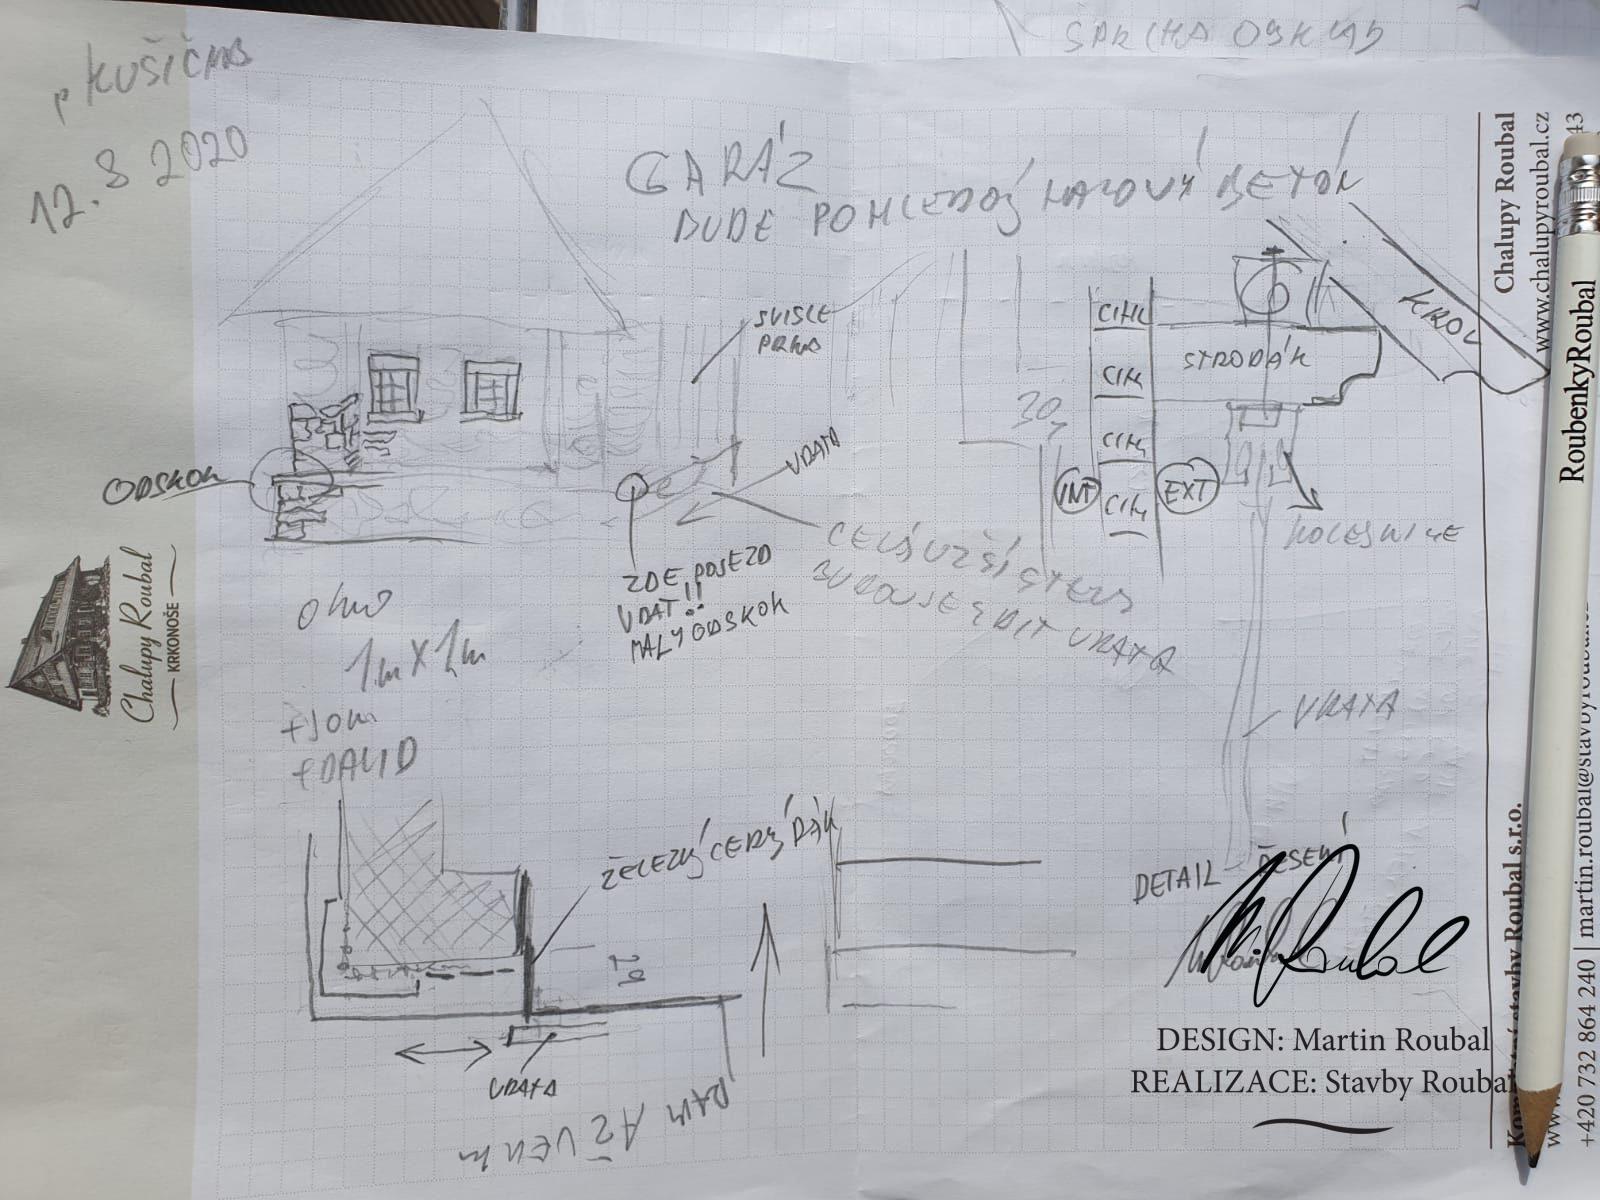 ŠPRCHA OBKLAD
p KUŠIČNS
12. 8 2020
GARÁŽ
BUDE POHLEDOVÝ HAZOVÝ BETON
SVISLE
PRKNO
ODSKOK
VRATA
ZDE POJEZD
VRAT!!
MALÝ ODSKOK
CELÁ UŽŠÍ STENA
BUDOU SE KRÝT VRATA
CIHL
CIHL
CIHL
CIHL
30
INT
EXT
STROPÁK
KROV
KOLEJNICE
VRATA
okno
1m x 1m
+JOM
+DAVID
ŽELEZNÝ ČERNÝ RÁM
VRATA
RAM AŽ VEN
DETAIL ŘEŠENÍ
M. Roubal
DESIGN: Martin Roubal
REALIZACE: Stavby Roubal
Chalupy Roubal
KRKONOŠE
Chalupy Roubal
www.chalupyroubal.cz
stavby Roubal s.r.o.
+420 732 864 240 | martin.roubal@stavbyroubal
RoubenkyRoubal